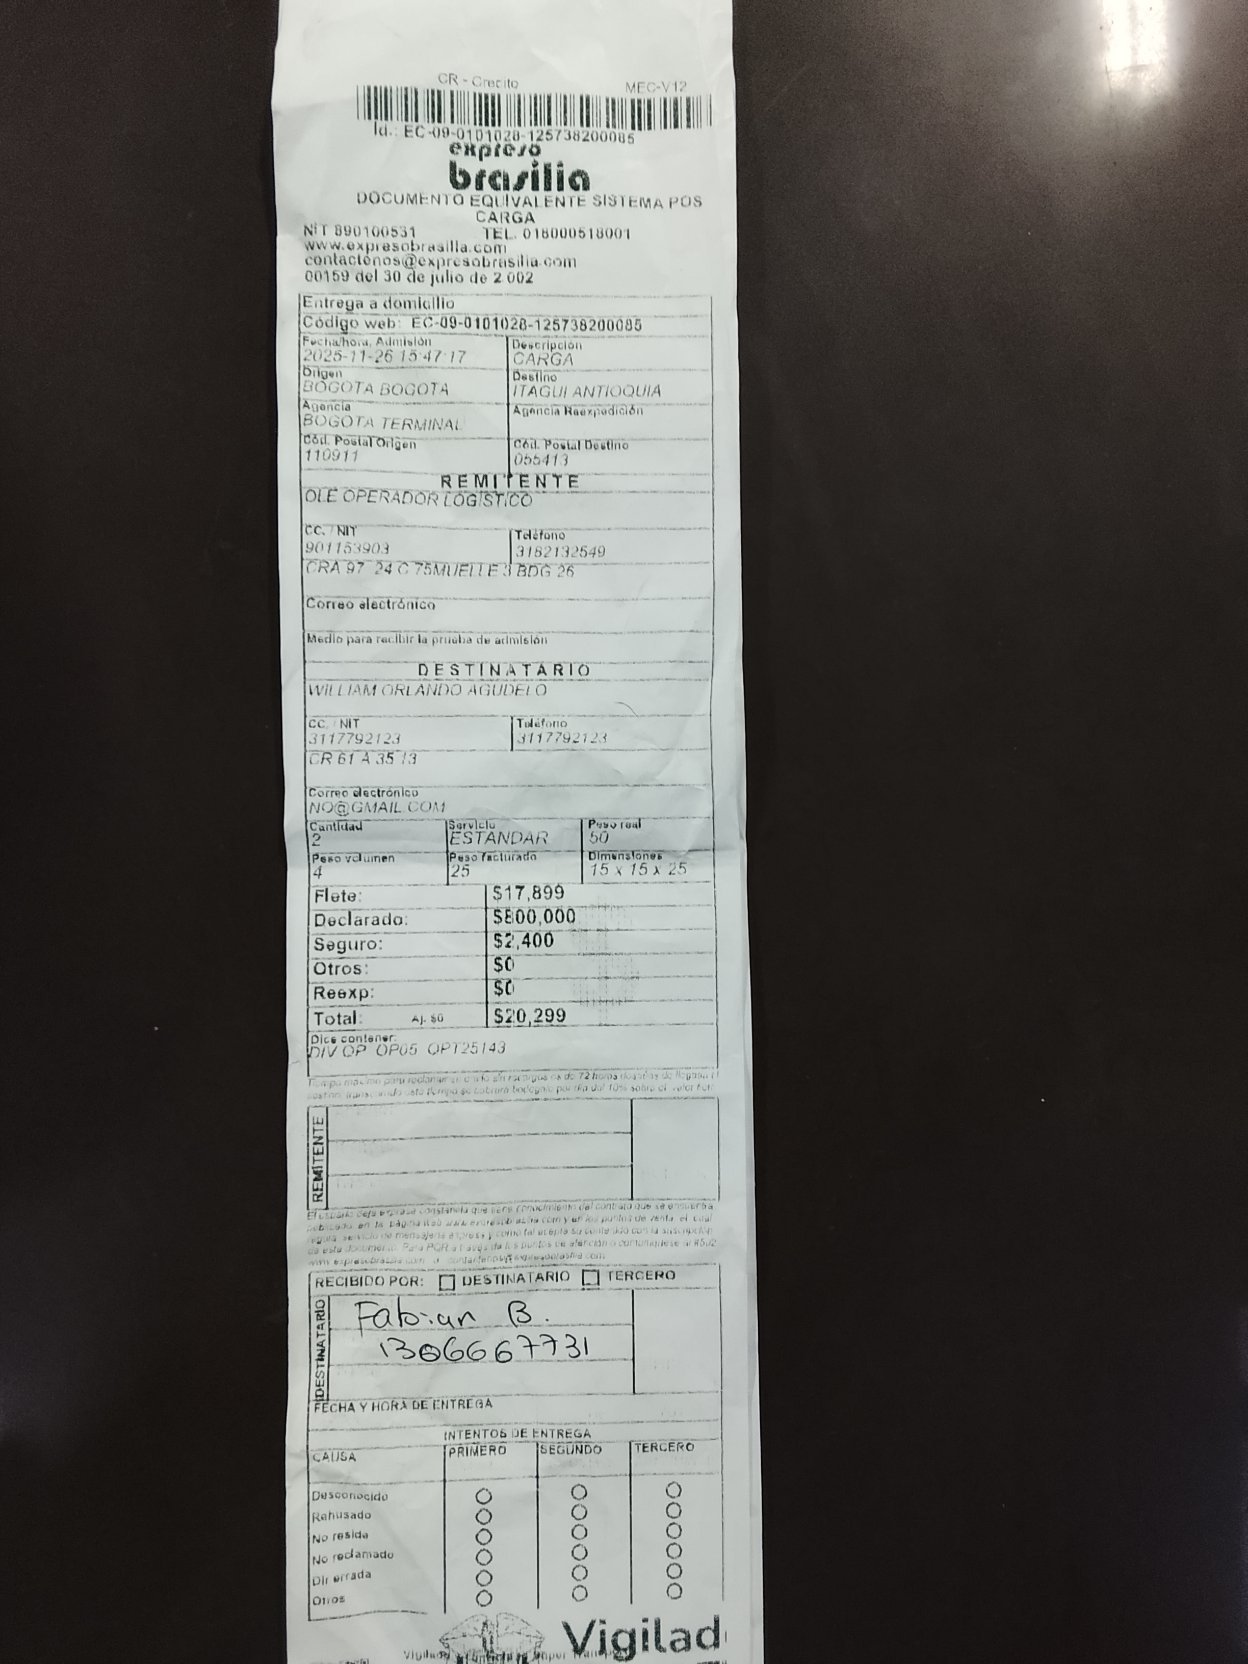 CR - Credito MEC-V12
Id.: EC-09-0101028-125738200085
expreso
brasilia
DOCUMENTO EQUIVALENTE SISTEMA POS
CARGA
NIT 890100531 TEL. 018000518001
www.expresobrasilia.com
contactenos@expresobrasilia.com
00159 del 30 de julio de 2.002
Entrega a domicilio
Código web: EC-09-0101028-125738200085
Fecha/hora, Admisión Descripción
2025-11-26 15:47:17 CARGA
Origen Destino
BOGOTA BOGOTA ITAGUI ANTIOQUIA
Agencia Agencia Reexpedición
BOGOTA TERMINAL
Cód. Postal Origen Cód. Postal Destino
110911 055413
REMITENTE
OLE OPERADOR LOGISTICO
CC. / NIT Teléfono
901153903 3182132549
CRA 97 24 C 75MUELLE 3 BDG 26
Correo electrónico
Medio para recibir la prueba de admisión
DESTINATARIO
WILLIAM ORLANDO AGUDELO
CC. / NIT Teléfono
3117792123 3117792123
CR 61 A 35 13
Correo electrónico
NO@GMAIL.COM
Cantidad Servicio Peso real
2 ESTANDAR 50
Peso volumen Peso facturado Dimensiones
4 25 15 x 15 x 25
Flete: $17,899
Declarado: $800,000
Seguro: $2,400
Otros: $0
Reexp: $0
Total: Aj. $0 $20,299
Dice contener:
DIV OP OP05 OPT25143
REMITENTE
RECIBIDO POR: DESTINATARIO TERCERO
DESTINATARIO
Fabian B.
1306667731
FECHA Y HORA DE ENTREGA
INTENTOS DE ENTREGA
CAUSA PRIMERO SEGUNDO TERCERO
Desconocido
Rehusado
No reside
No reclamado
Dir errada
Otros
Vigilad